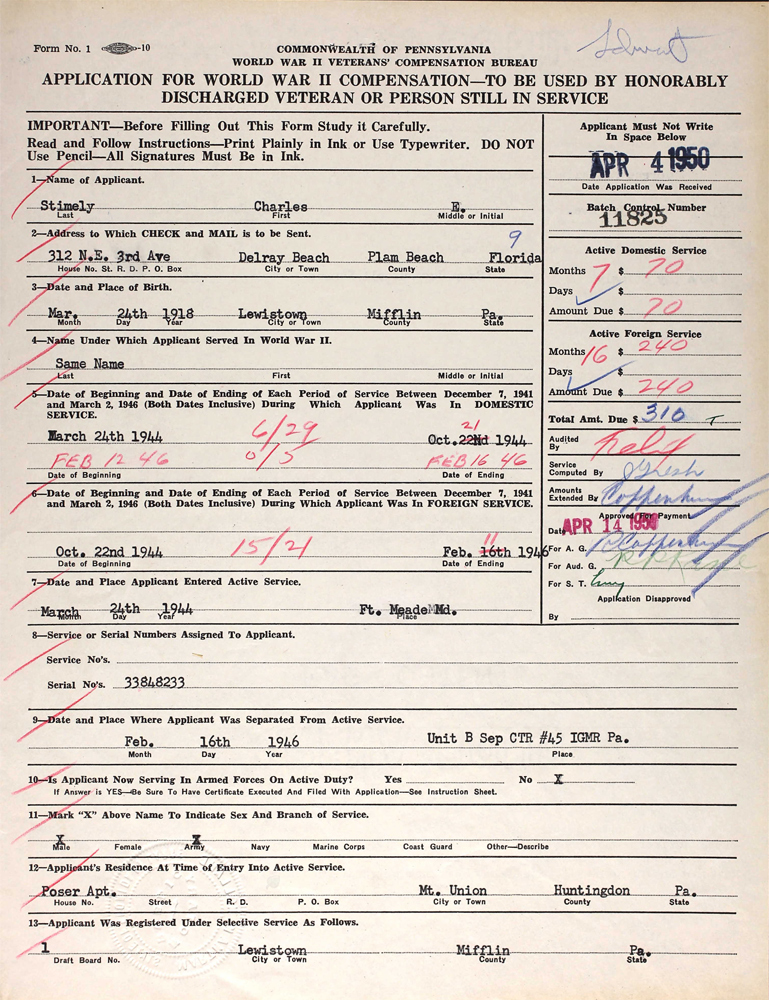 Form No. 1 -10
COMMONWEALTH OF PENNSYLVANIA
WORLD WAR II VETERANS' COMPENSATION BUREAU
APPLICATION FOR WORLD WAR II COMPENSATION—TO BE USED BY HONORABLY
DISCHARGED VETERAN OR PERSON STILL IN SERVICE
IMPORTANT—Before Filling Out This Form Study it Carefully.
Read and Follow Instructions—Print Plainly in Ink or Use Typewriter. DO NOT
Use Pencil—All Signatures Must Be in Ink.
Applicant Must Not Write
In Space Below
APR 4 1950
Date Application Was Received
Batch Control Number
11825
1—Name of Applicant.
Stimely Charles E.
Last First Middle or Initial
2—Address to Which CHECK and MAIL is to be Sent.
9
312 N.E. 3rd Ave Delray Beach Plam Beach Florida
House No. St. R. D. P. O. Box City or Town County State
3—Date and Place of Birth.
Mar. 24th 1918 Lewistown Mifflin Pa.
Month Day Year City or Town County State
4—Name Under Which Applicant Served In World War II.
Same Name
Last First Middle or Initial
5—Date of Beginning and Date of Ending of Each Period of Service Between December 7, 1941
and March 2, 1946 (Both Dates Inclusive) During Which Applicant Was In DOMESTIC
SERVICE.
21
March 24th 1944 6/29 Oct. 22Nd 1944
FEB 12 46 0/5 FEB 16 46
Date of Beginning Date of Ending
6—Date of Beginning and Date of Ending of Each Period of Service Between December 7, 1941
and March 2, 1946 (Both Dates Inclusive) During Which Applicant Was In FOREIGN SERVICE.
11
Oct. 22nd 1944 15/21 Feb. 16th 1946
Date of Beginning Date of Ending
7—Date and Place Applicant Entered Active Service.
March 24th 1944 Ft. Meade Md.
Month Day Year Place
Active Domestic Service
Months 7 $ 70
Days $
Amount Due $ 70
Active Foreign Service
Months 16 $ 240
Days $
Amount Due $ 240
Total Amt. Due $ 310
Audited
By
Service
Computed By
Amounts
Extended By
Approved For Payment
Date APR 14 1950
For A. G.
For Aud. G.
For S. T.
Application Disapproved
By
8—Service or Serial Numbers Assigned To Applicant.
Service No's.
Serial No's. 33848233
9—Date and Place Where Applicant Was Separated From Active Service.
Feb. 16th 1946 Unit B Sep CTR #45 IGMR Pa.
Month Day Year Place
10—Is Applicant Now Serving In Armed Forces On Active Duty? Yes No X
If Answer is YES—Be Sure To Have Certificate Executed And Filed With Application—See Instruction Sheet.
11—Mark "X" Above Name To Indicate Sex And Branch of Service.
X X
Male Female Army Navy Marine Corps Coast Guard Other—Describe
12—Applicant's Residence At Time of Entry Into Active Service.
Poser Apt. Mt. Union Huntingdon Pa.
House No. Street R. D. P. O. Box City or Town County State
13—Applicant Was Registered Under Selective Service As Follows.
1 Lewistown Mifflin Pa.
Draft Board No. City or Town County State